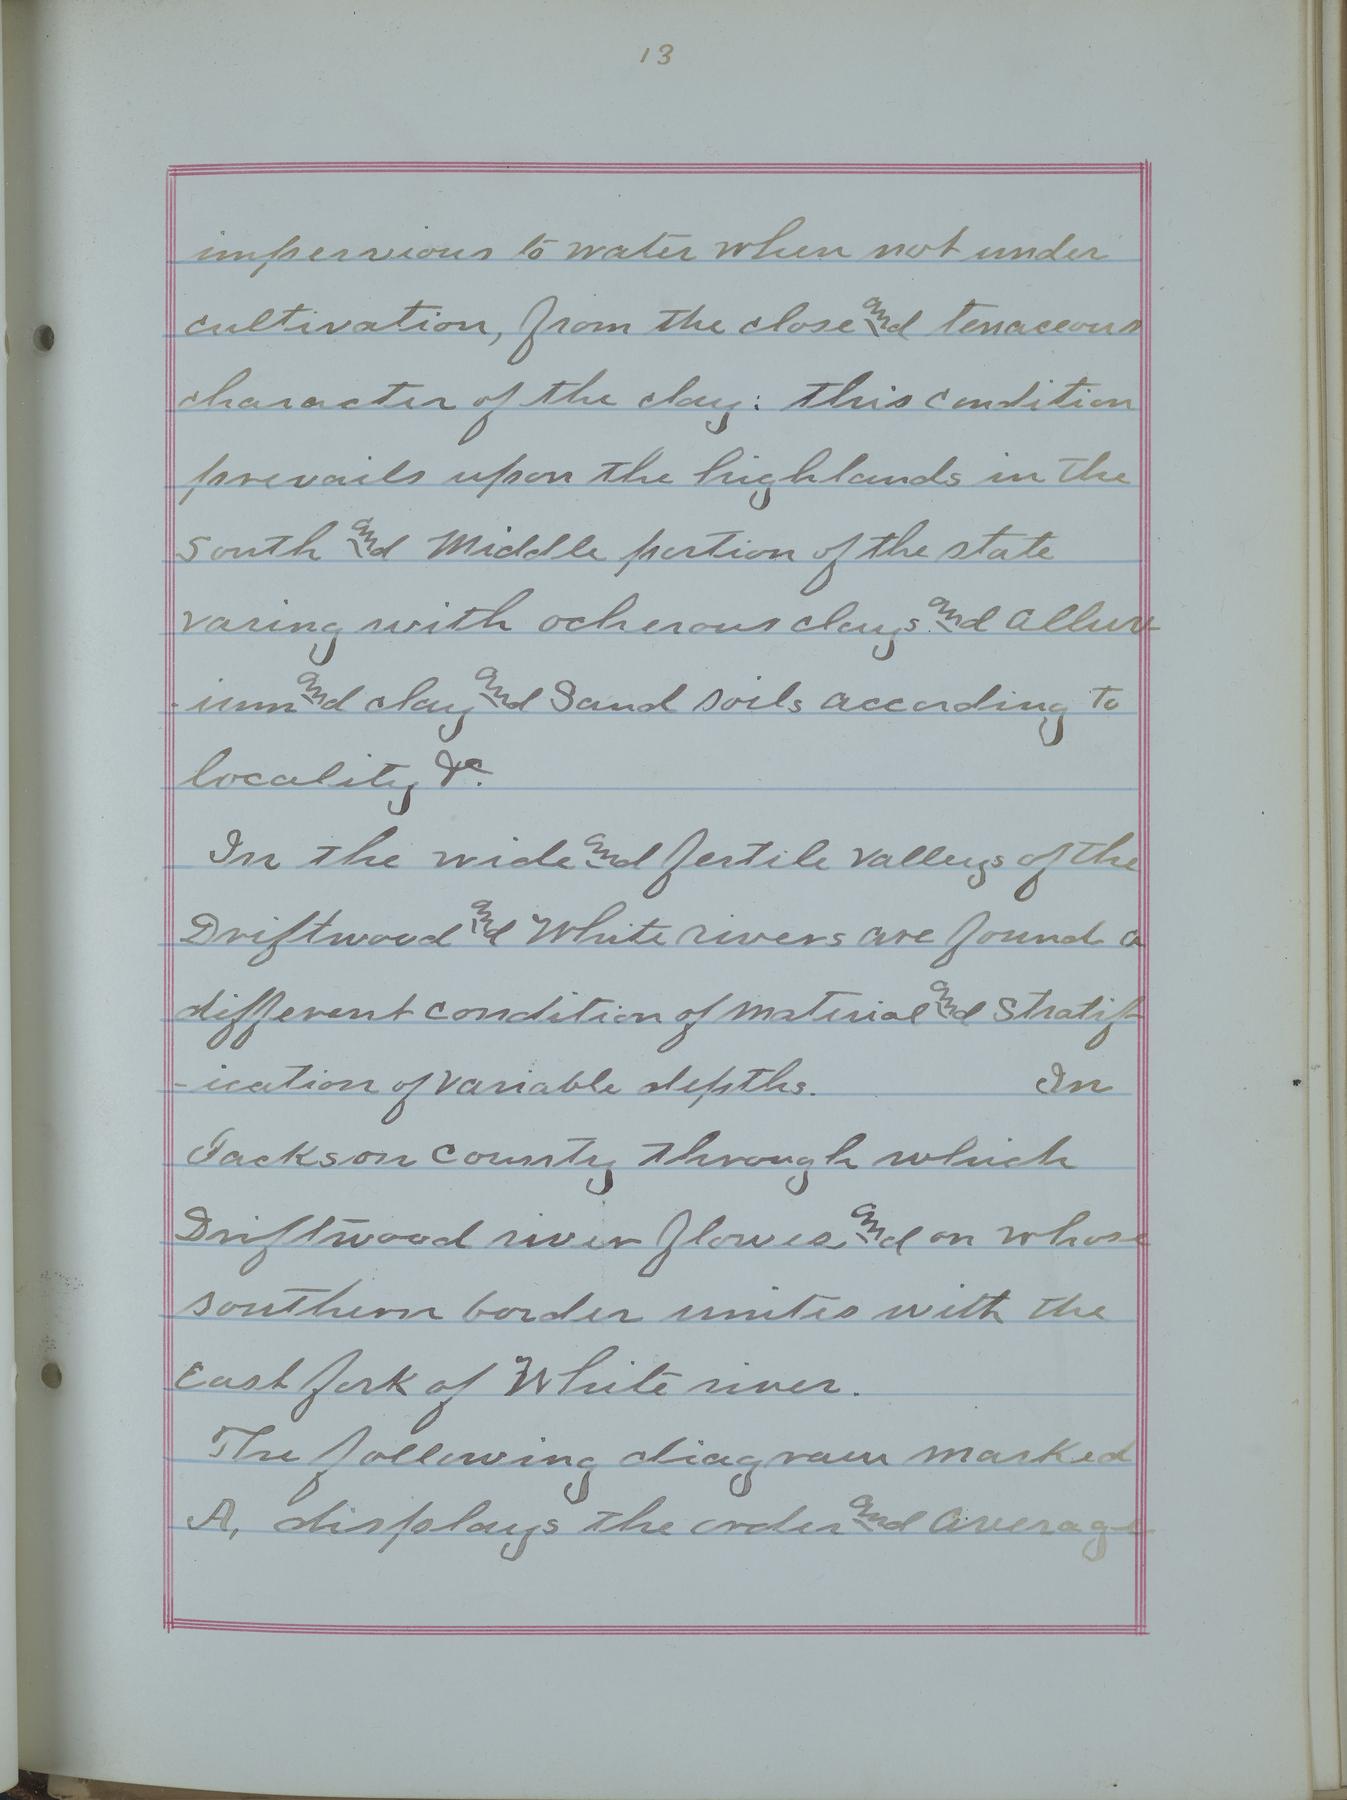 13
impervious to water when not under
cultivation, from the close and tenaceous
character of the clay: this condition
prevails upon the highlands in the
South and Middle portion of the state
varing with ocherous clays and alluv
-ium and clay and Sand soils according to
locality &c.
In the wide and fertile valleys of the
Driftwood and White rivers are found a
different condition of material and Stratif-
-ication of variable depths. In
Jackson county through which
Driftwood river flowes and on whose
southern border unites with the
East fork of White river.
The following diagram marked
A, displays the order and average